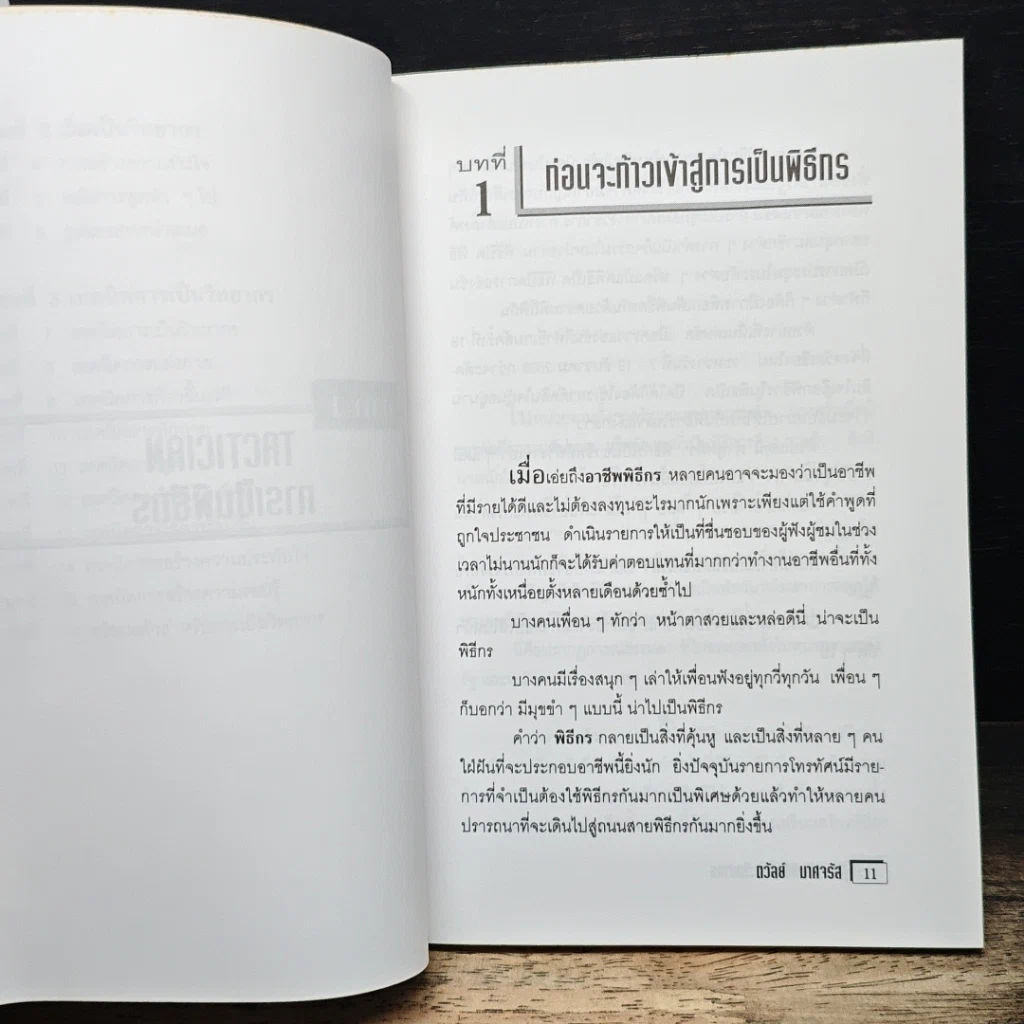 บทที่
1
ก่อนจะก้าวเข้าสู่การเป็นพิธีกร
เมื่อเอ่ยถึงอาชีพพิธีกร หลายคนอาจจะมองว่าเป็นอาชีพ
ที่มีรายได้ดีและไม่ต้องลงทุนอะไรมากนักเพราะเพียงแต่ใช้คำพูดที่
ถูกใจประชาชน ดำเนินรายการให้เป็นที่ชื่นชอบของผู้ฟังผู้ชมในช่วง
เวลาไม่นานนักก็จะได้รับค่าตอบแทนที่มากกว่าทำงานอาชีพอื่นที่ทั้ง
หนักทั้งเหนื่อยตั้งหลายเดือนด้วยซ้ำไป
บางคนเพื่อน ๆ ทักว่า หน้าตาสวยและหล่อดีนี่ น่าจะเป็น
พิธีกร
บางคนมีเรื่องสนุก ๆ เล่าให้เพื่อนฟังอยู่ทุกวี่ทุกวัน เพื่อน ๆ
ก็บอกว่า มีมุขขำ ๆ แบบนี้ น่าไปเป็นพิธีกร
คำว่า พิธีกร กลายเป็นสิ่งที่คุ้นหู และเป็นสิ่งที่หลาย ๆ คน
ใฝ่ฝันที่จะประกอบอาชีพนี้ยิ่งนัก ยิ่งปัจจุบันรายการโทรทัศน์มีราย-
การที่จำเป็นต้องใช้พิธีกรกันมากเป็นพิเศษด้วยแล้วทำให้หลายคน
ปรารถนาที่จะเดินไปสู่ถนนสายพิธีกรกันมากยิ่งขึ้น
ถวัลย์ มาศจรัส 11